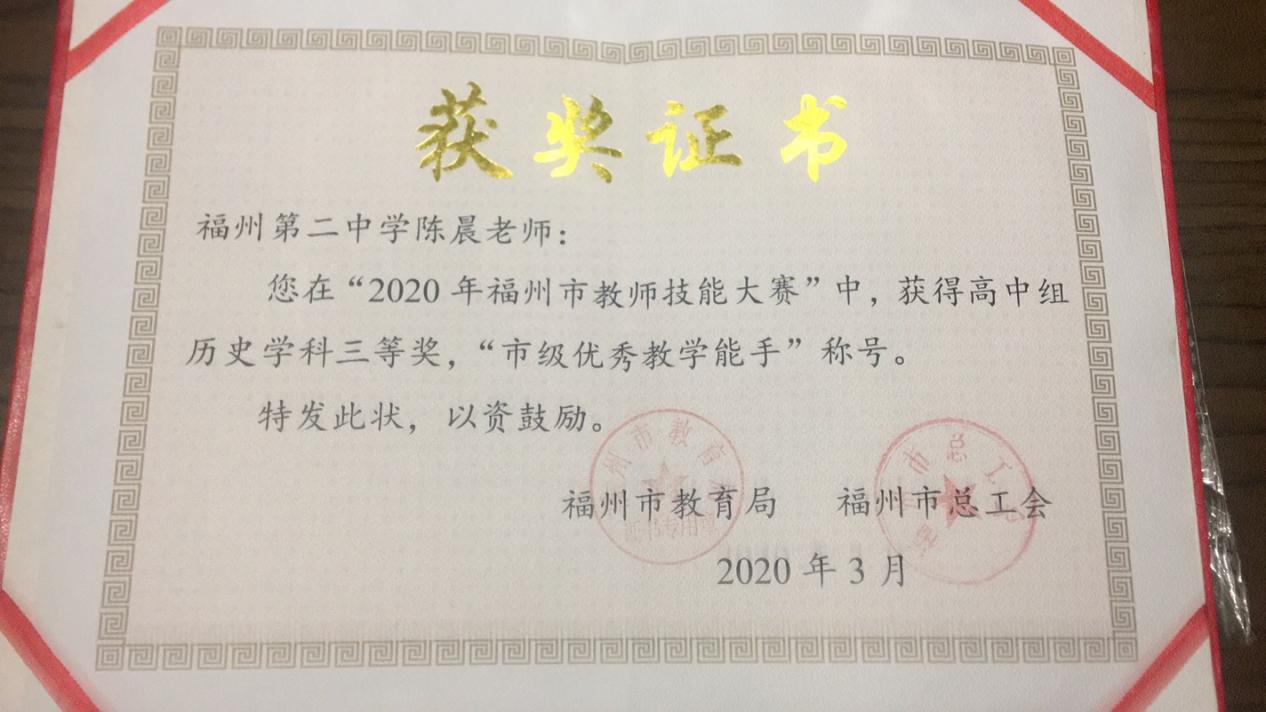 获奖证书
福州第二中学陈晨老师：
您在“2020 年福州市教师技能大赛”中，获得高中组
历史学科三等奖，“市级优秀教学能手”称号。
特发此状，以资鼓励。
州市教育
市总工
福州市教育局 福州市总工会
2020 年 3 月